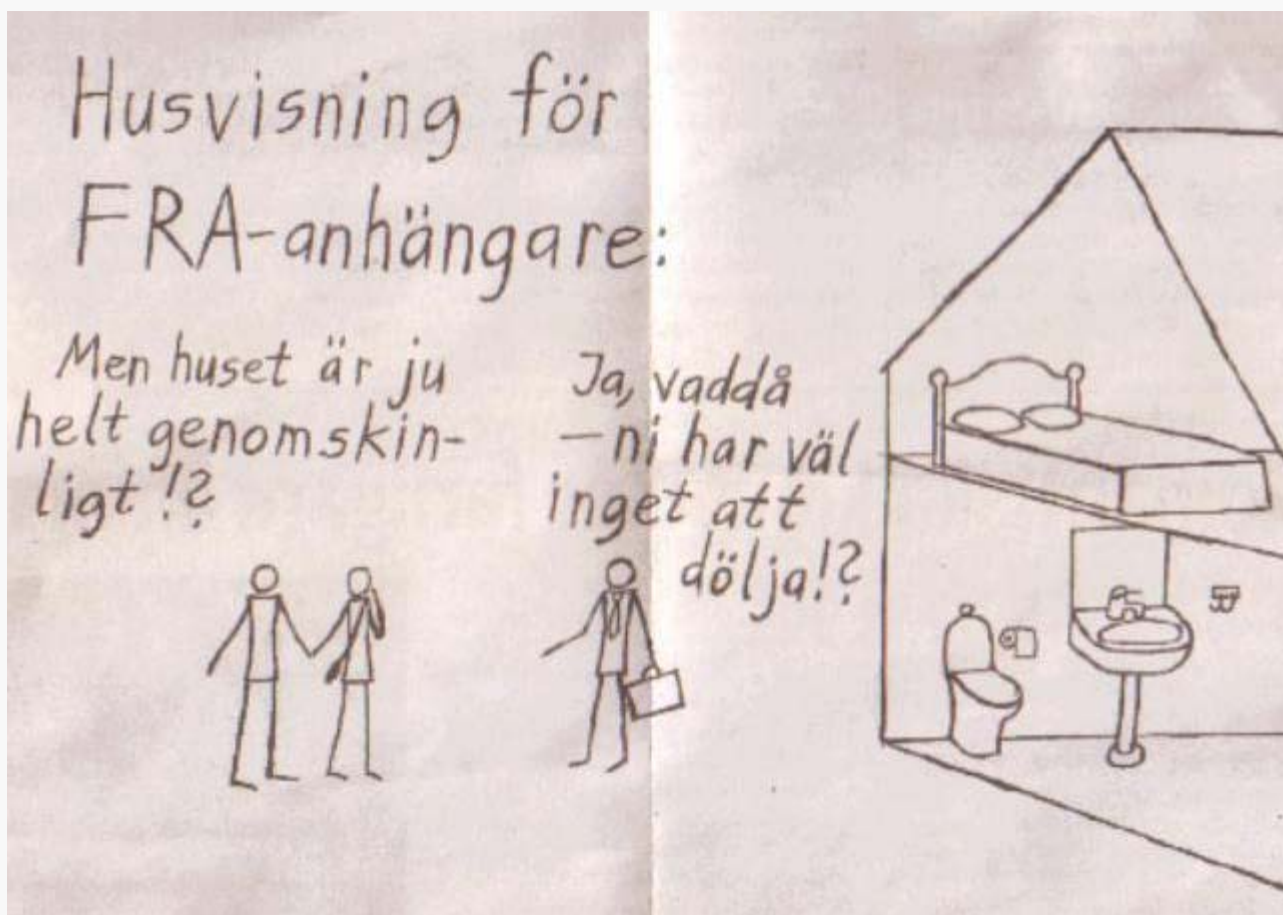 Husvisning för
FRA-anhängare:
Men huset är ju
helt genomskin-
ligt!?
Ja, vaddå
—ni har väl
inget att
dölja!?